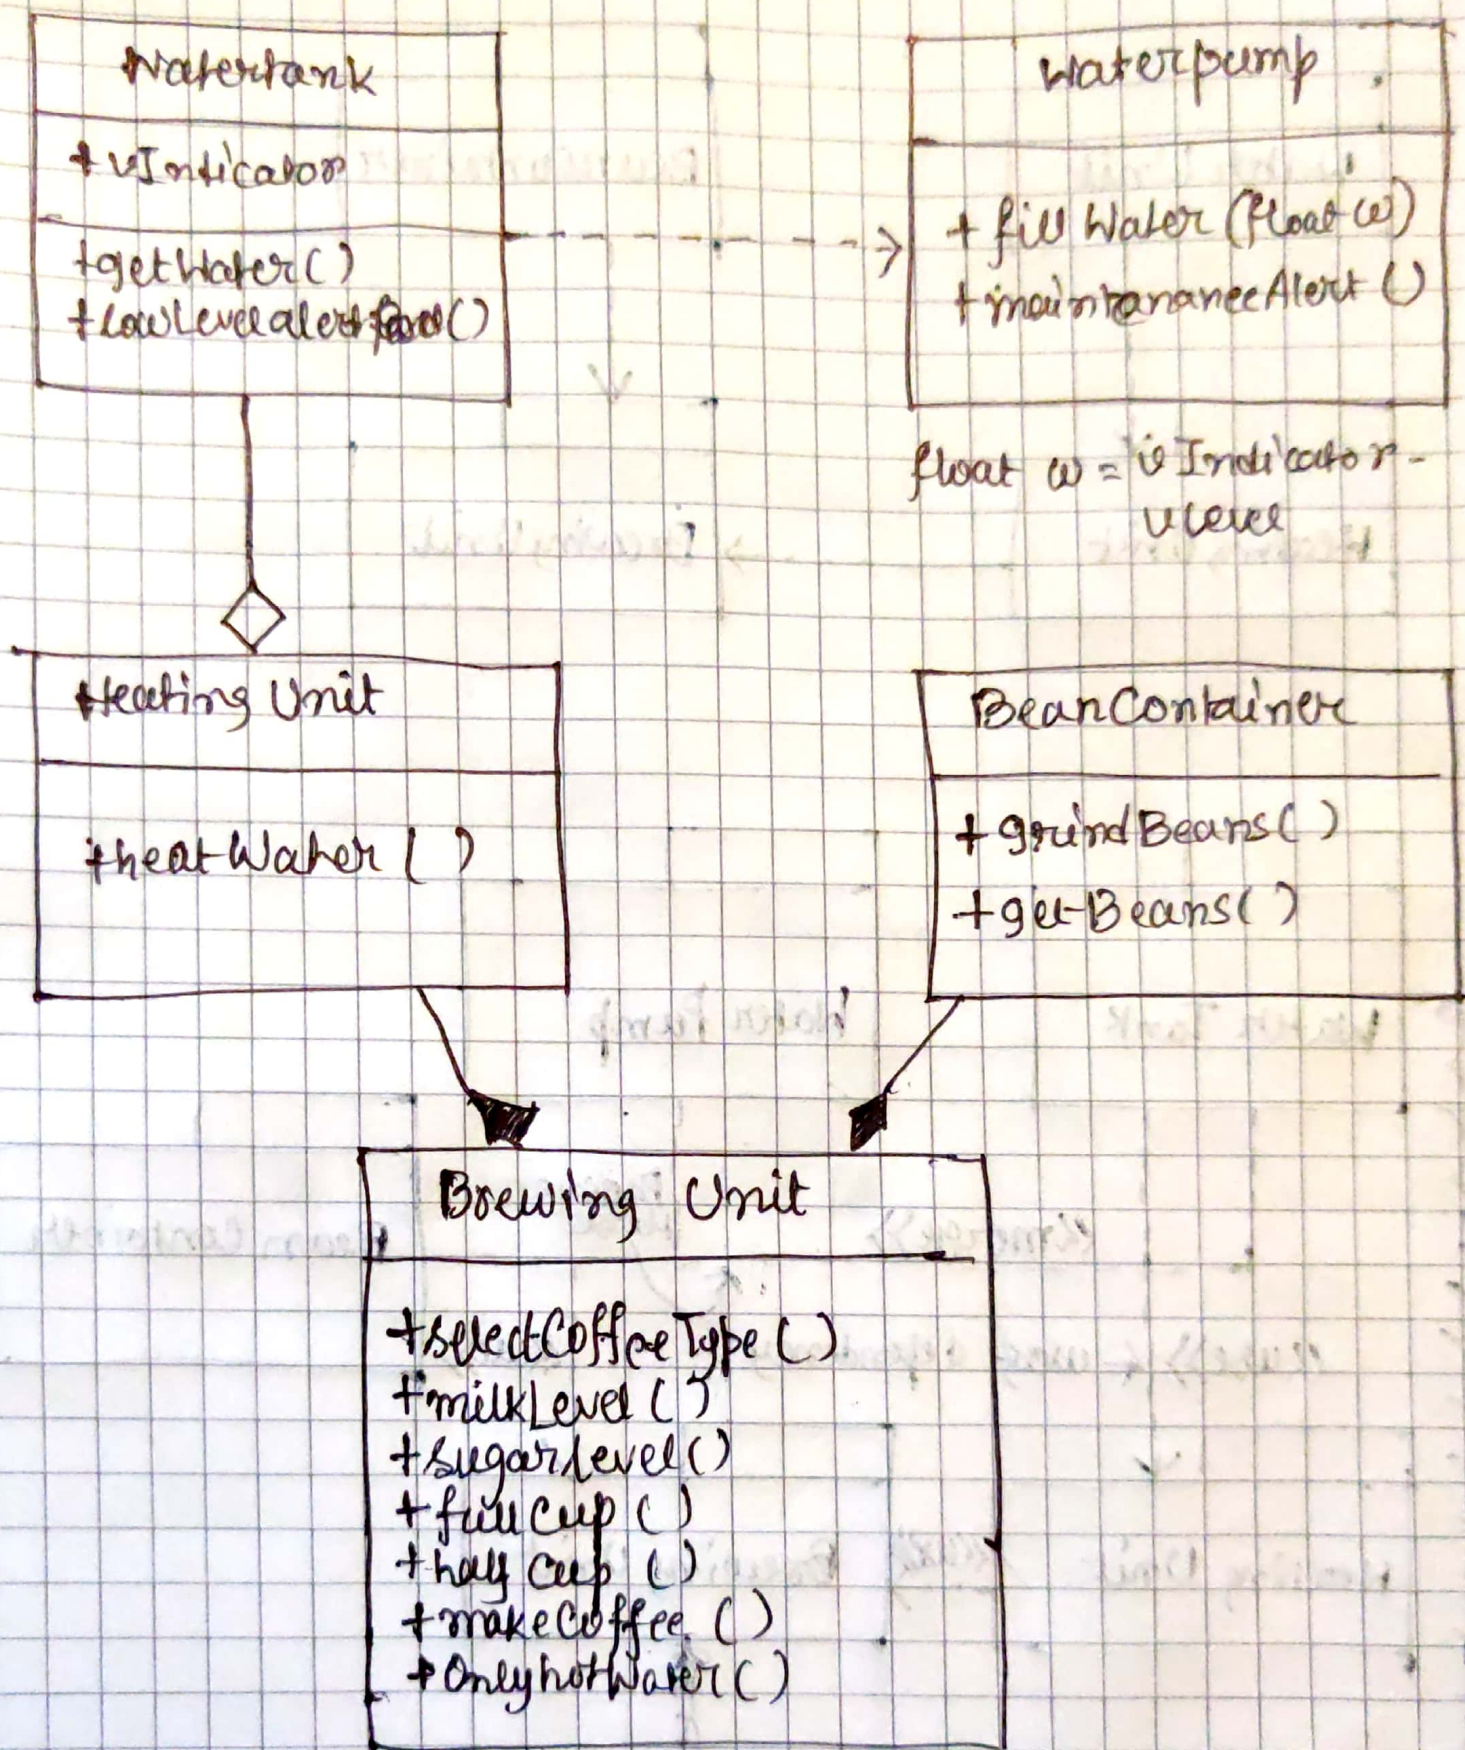 Watertank
+ vIndicator
+getWater()
+lowLevelalert()
Waterpump
+ fill Water (float w)
+maintananceAlert ()
float w = vIndicator -
vLevel
Heating Unit
+heatWater ( )
BeanContainer
+ grindBeans( )
+getBeans( )
Brewing Unit
+selectCoffeeType ( )
+milkLevel ( )
+sugarlevel( )
+ fullCup ( )
+half Cup ( )
+makeCoffee ( )
+OnlyhotWater( )